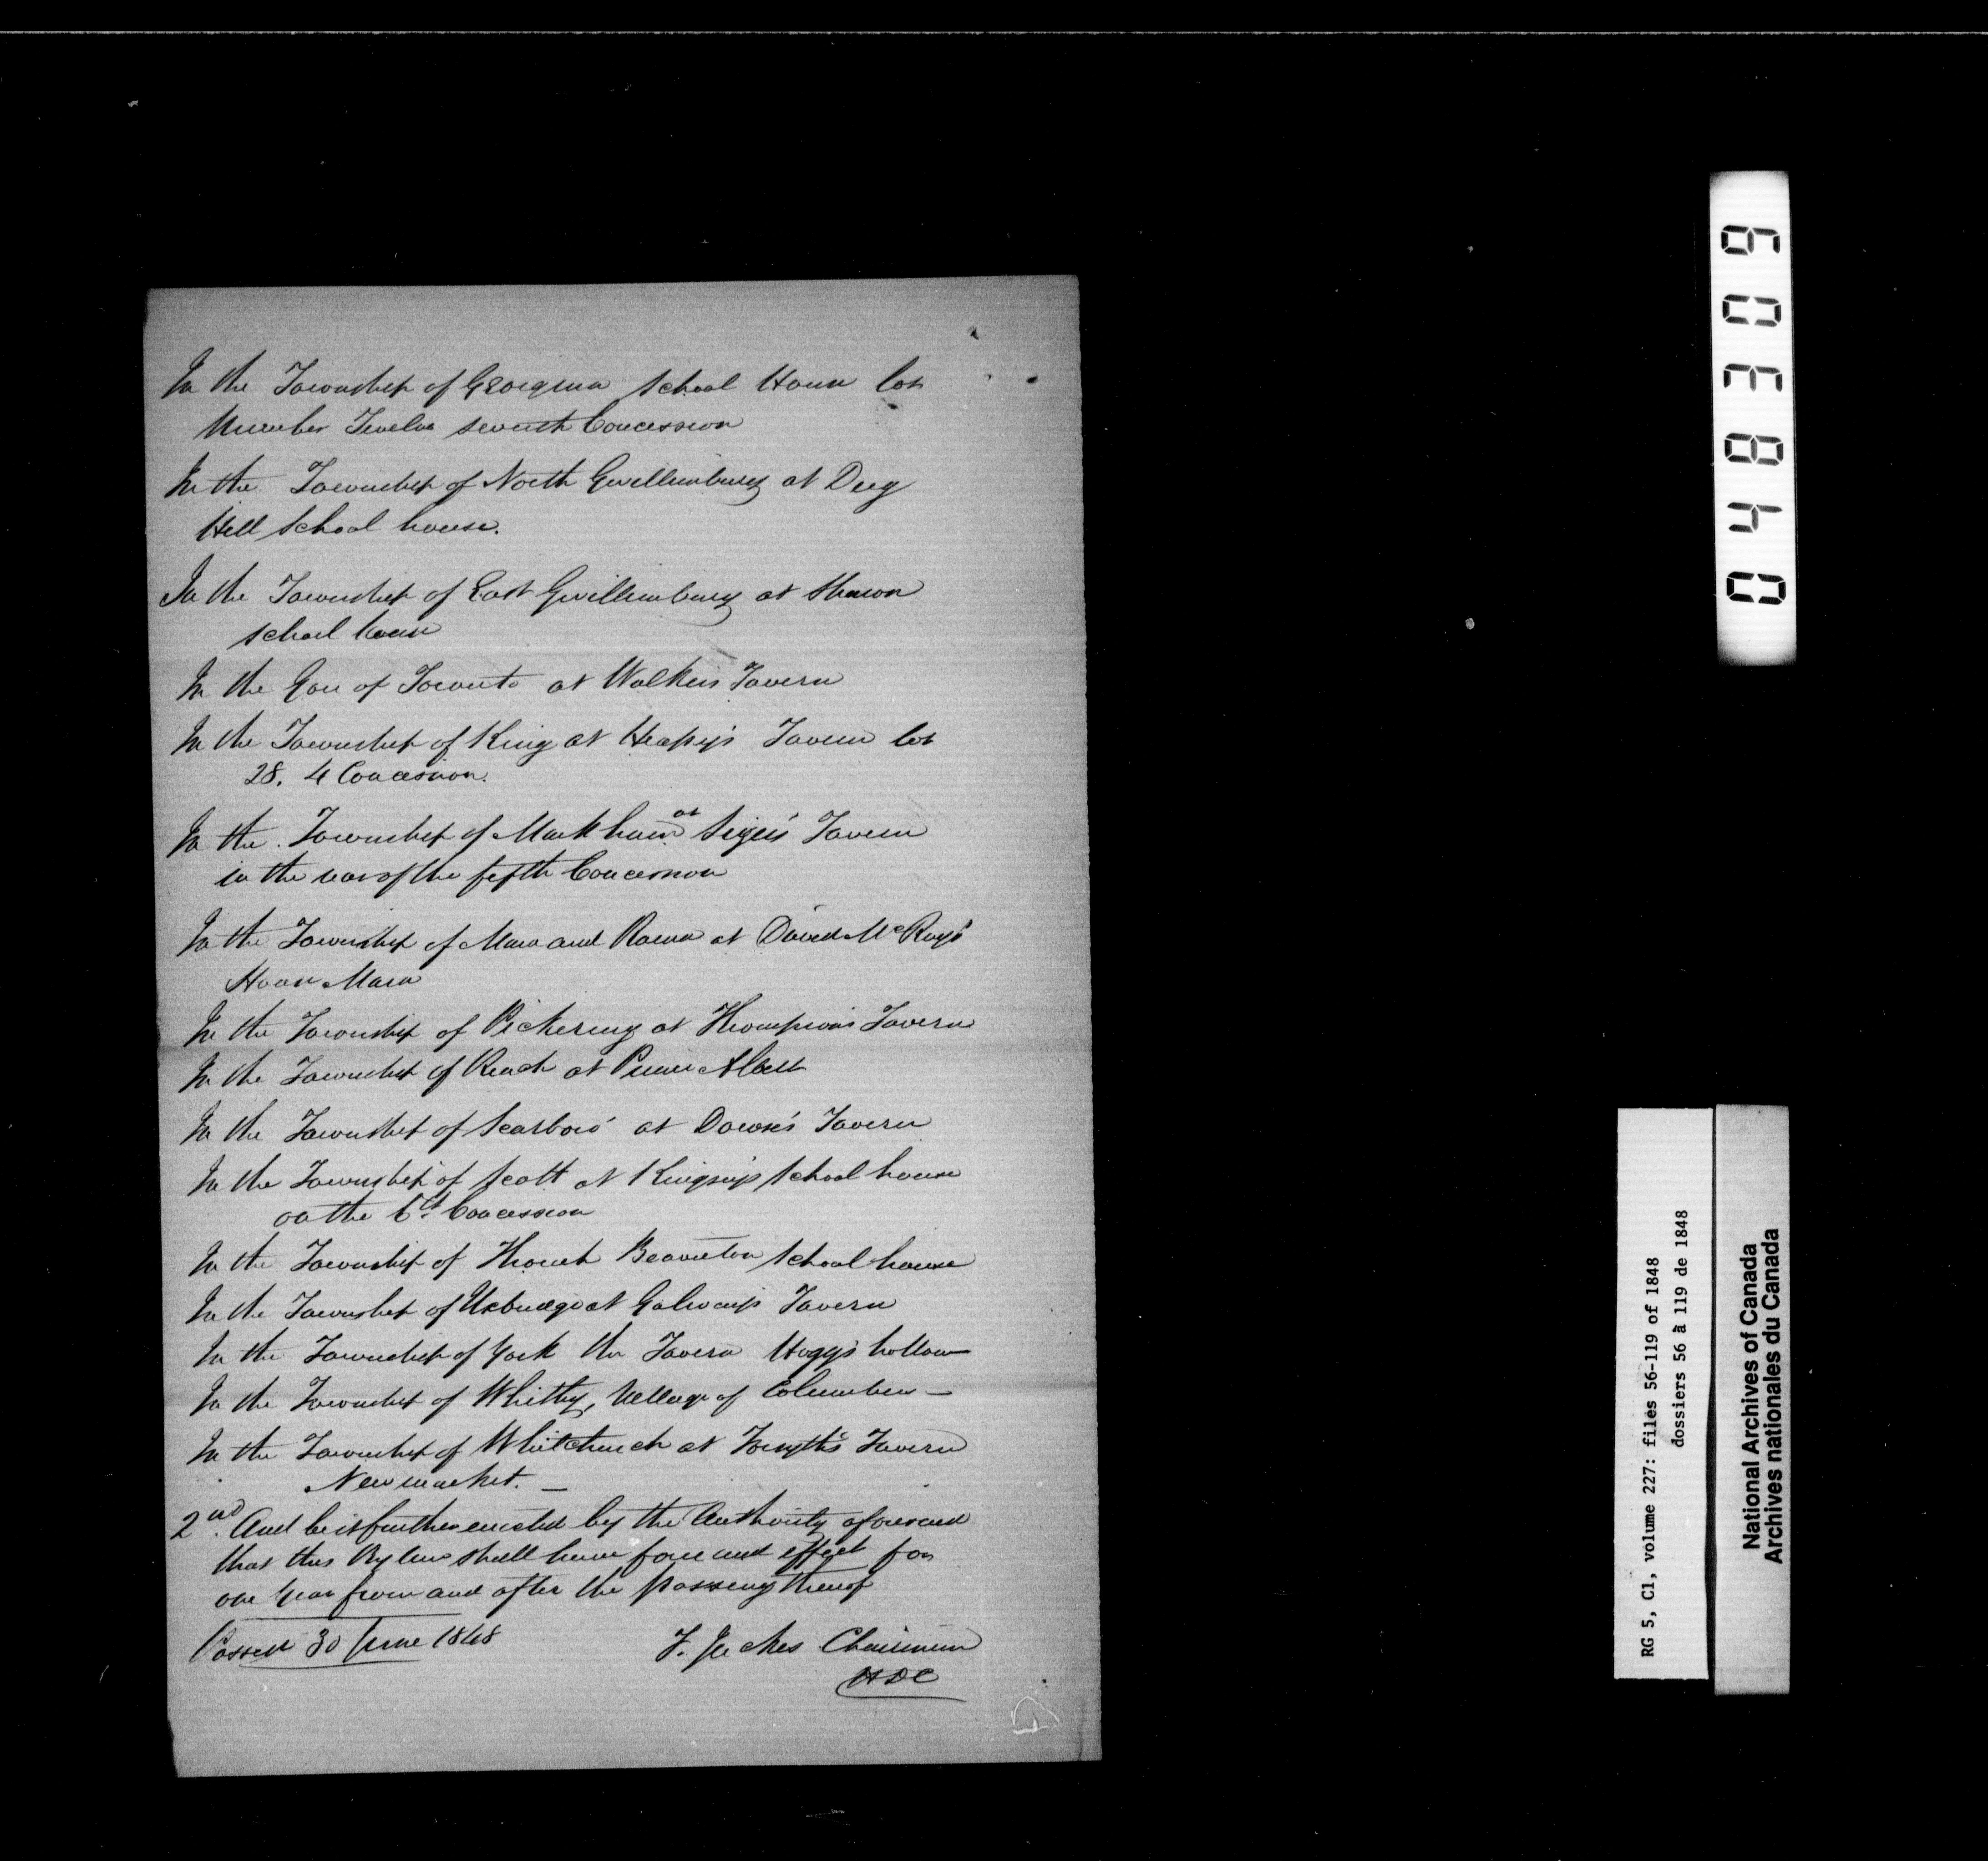 In the Township of Georgina School House lot
Number Twelve seventh Concession
In the Township of North Gwillimbury at
Hill School house.
In the Township of East Gwillimbury at Sharon
School house
In the Gore of Toronto at Walkers Tavern
In the Township of King at Heapey's Tavern lot
28. 4 Concession.
In the Township of Markham at Tavern
in the rear of the fifth Concession
In the Township of Mara and Rama at David McRay's
House Mara
In the Township of Pickering at Thompsons Tavern
In the Township of Reach at Prince Albert
In the Township of Scarboro' at Dowse's Tavern
In the Township of Scott at School house
on the Concession
In the Township of Thorah Beaverton School house
In the Township of Uxbridge at Galway's Tavern
In the Township of York the Tavern Hoggs hollow
In the Township of Whitby, Village of Columbus —
In the Township of Whitchurch at Forsyth's Tavern
Newmarket. —
2nd. And be it further enacted by the Authority aforesaid
that this Bylaw shall have force and effect for
one year from and after the passing thereof
Passed 30 June 1848
F. Jackes Chairman
HDC
040389
RG 5, C1, volume 227: files 56-119 of 1848
dossiers 56 à 119 de 1848
National Archives of Canada
Archives nationales du Canada